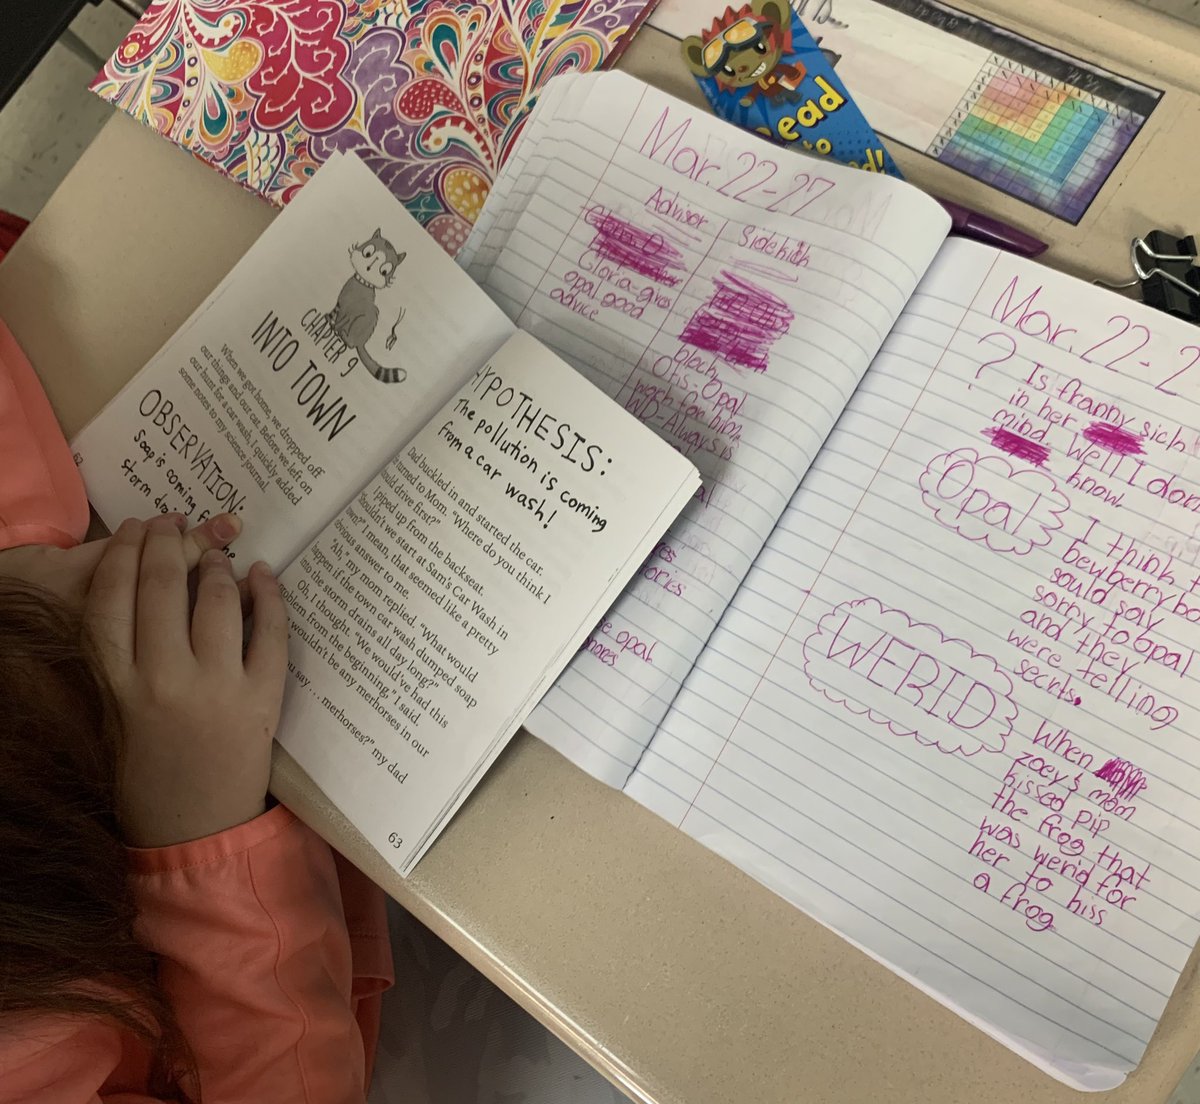 Read
to
CHAPTER 9
INTO TOWN
When we got home, we dropped off
our things and our cat. Before we left on
our hunt for a car wash, I quickly added
some notes to my science journal.
OBSERVATION:
Soap is coming
storm
62
HYPOTHESIS:
The pollution is coming
from a car wash!
Dad buckled in and started the car.
turned to Mom. "Where do you think I
should drive first?"
I piped up from the backseat.
"Shouldn't we start at Sam's Car Wash in
town?" I mean, that seemed like a pretty
obvious answer to me.
"Ah," my mom replied. "What would
happen if the town car wash dumped soap
into the storm drains all day long?"
Oh, I thought. "We would've had this
problem from the beginning," I said.
wouldn't be any merhorses in our
you say . . . merhorses?" my dad
63
Mar. 22-27
Advisor
Gloria-gives
opal good
advice
Sidekick
Otis-Opal
WD-Always is
opal
Mar. 22-2
? Is franny sich
in her
mind. Well I don
know.
Opal
I think
sould say
sorry to opal
and they
were telling
secrits.
WERID
When
zoey's mom
kissed pip
the frog that
was werid for
her to kiss
a frog